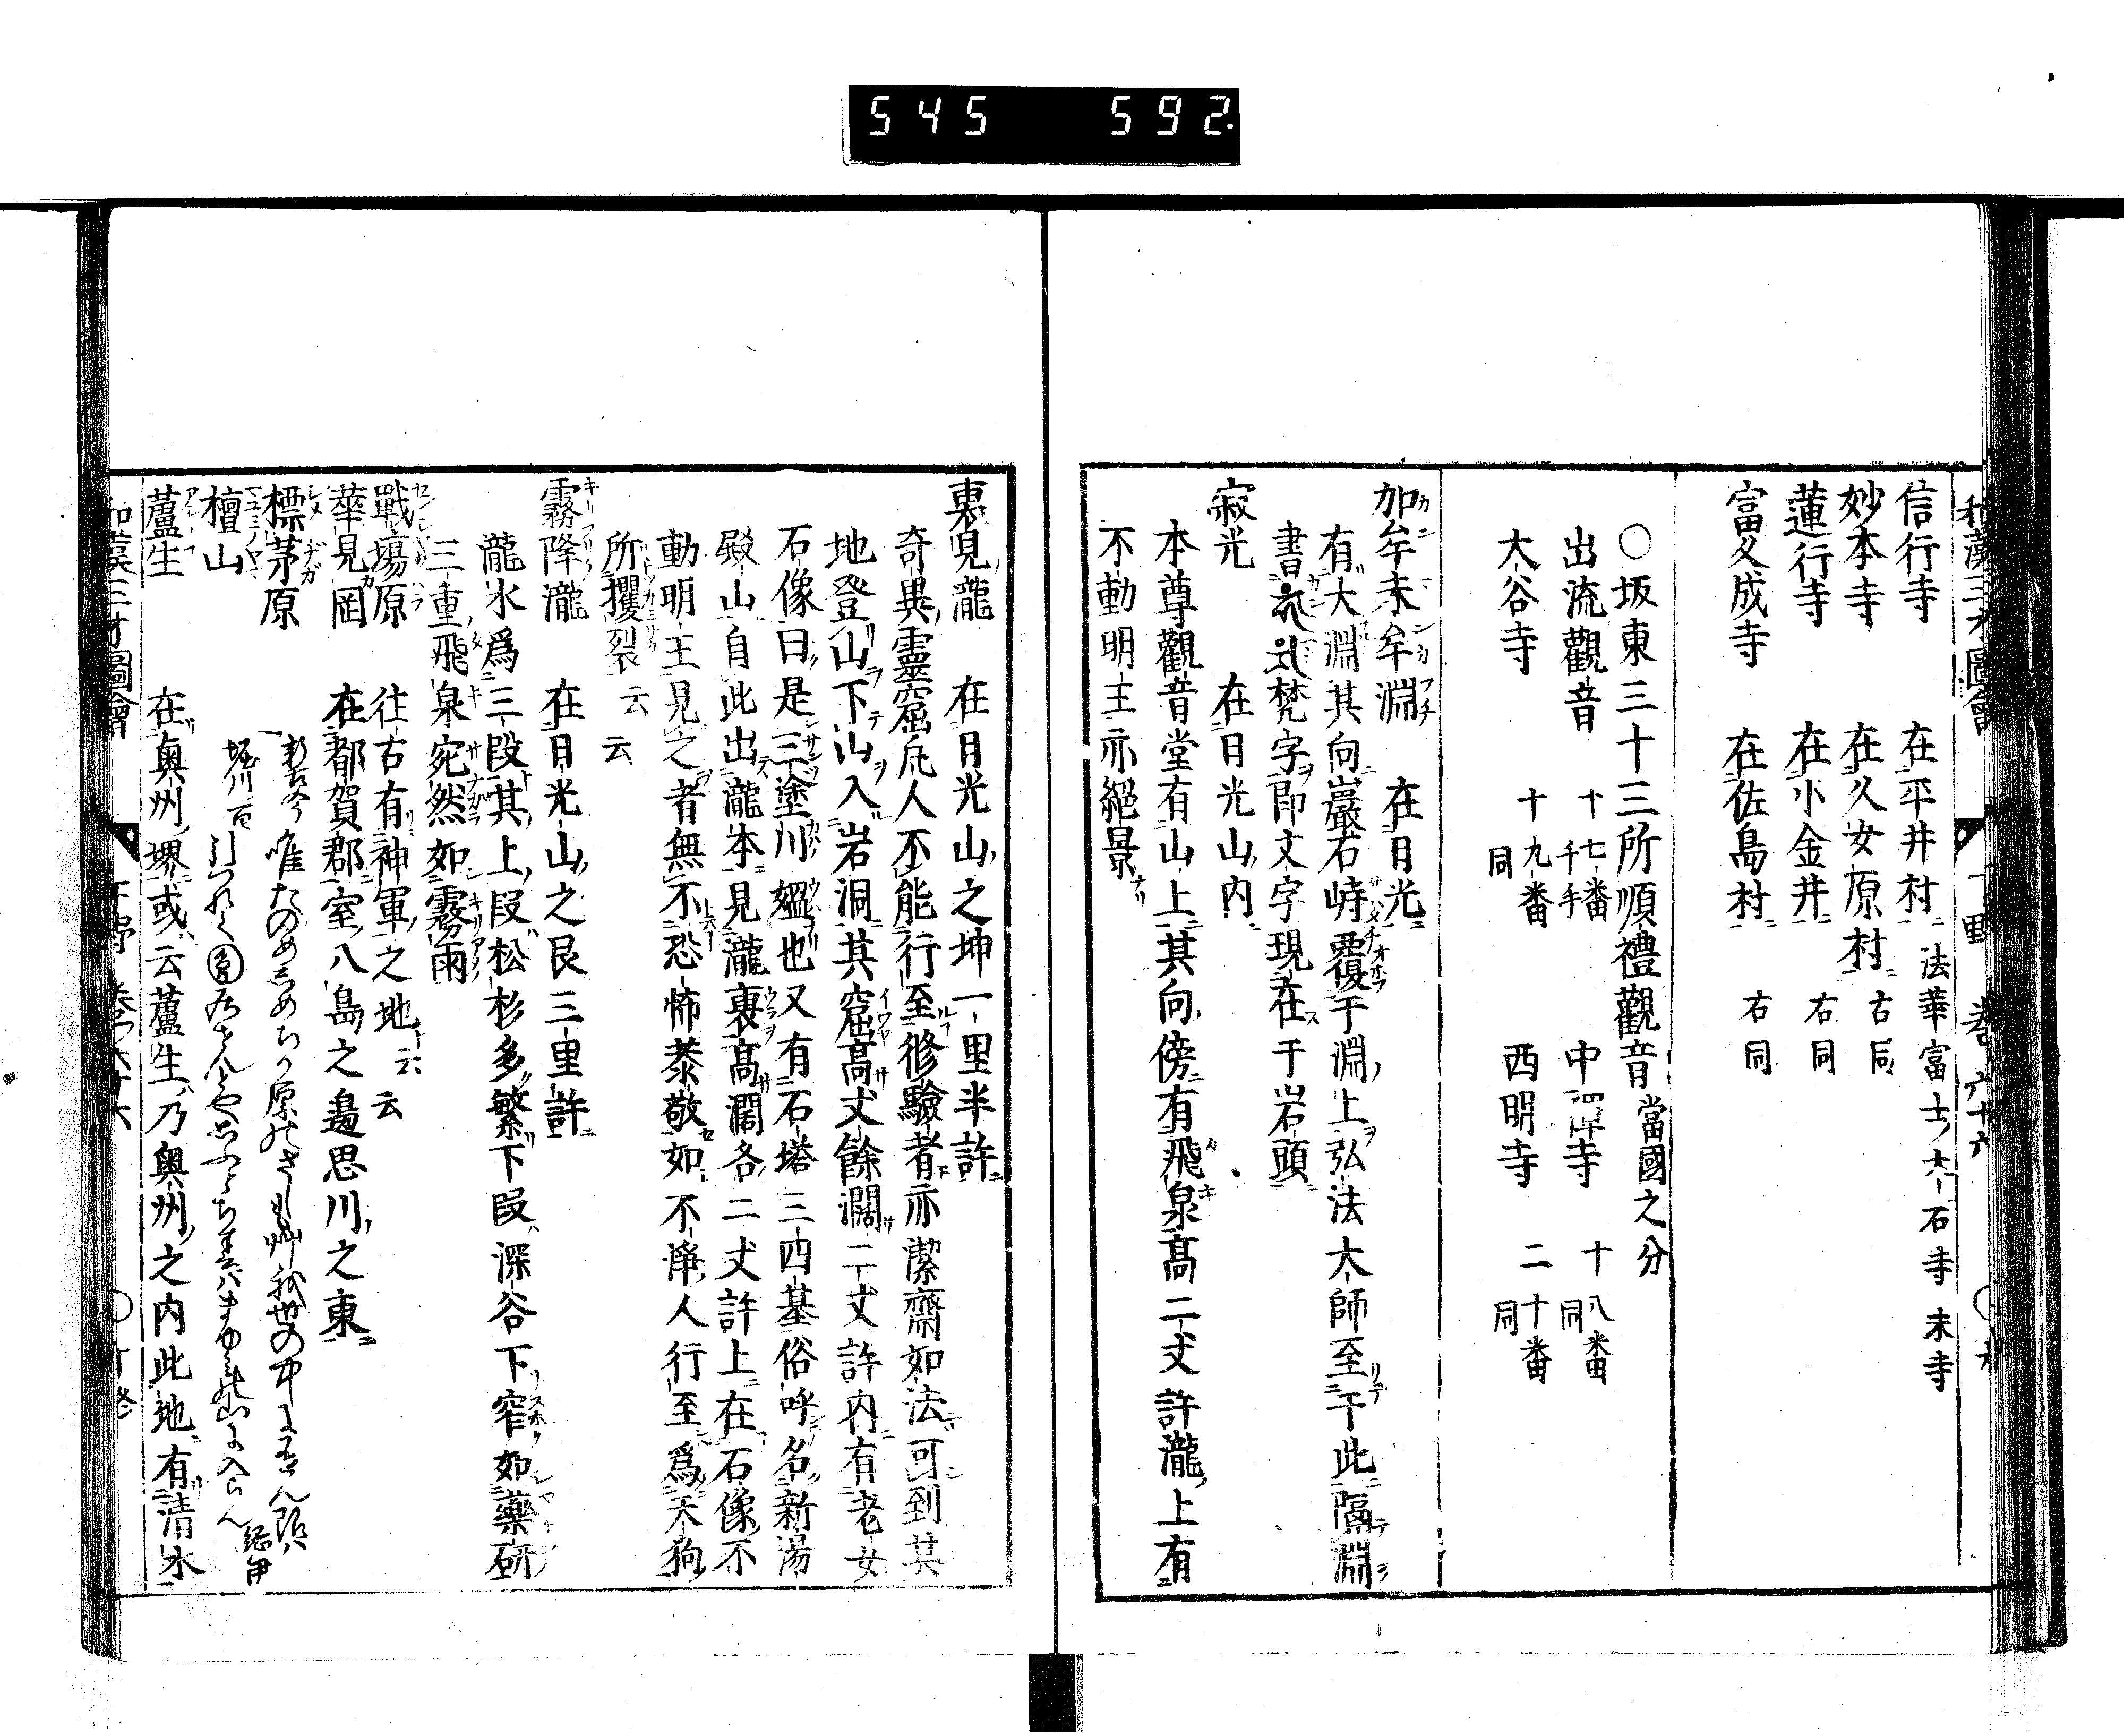 545 592
和漢三才圖會 下野 卷六十六
信行寺 在平井村 法華富士大石寺末寺
妙本寺 在久女原村 右同
蓮行寺 在小金井 右同
富久成寺 在佐島村 右同
○坂東三十三所順禮觀音當國之分
出流觀音 十七番 千手 中禪寺 十八番 同
大谷寺 十九番 同 西明寺 二十番 同
加牟未牟淵 在日光
有大淵其向巖石峙覆于淵上弘法大師至于此隔淵
書 梵字卽文字現在于岩頭
寂光 在日光山內
本尊觀音堂有山上其向傍有飛泉高二丈許瀧上有
不動明王亦絕景
裏見瀧 在日光山之坤一里半許
奇異靈窟凡人不能行至修驗者亦潔齋如法可到其
地登山下山入岩洞其窟高丈餘濶二丈許內有老女
石像曰是三塗川嫗也又有石塔三四基俗呼名新湯
殿山自此出瀧本見瀧裏高濶各二丈許上在石像不
動明王見之者無不恐怖恭敬如不淨人行至爲天狗
所攫裂云云
霧降瀧 在日光山之艮三里許
瀧水爲三段其上段松杉多繁下段深谷下窄如藥研
三重飛泉宛然如霧雨
戰場原 往古有神軍之地云云
華見岡 在都賀郡室八島之邊思川之東
標茅原 新古今 唯たのめしめちか原のさしも艸我世の中にあらん限は
檀山 堀川百 引つれて
蘆生 在奧州堺或云蘆生乃奧州之內此地有清水
和漢三才圖會 下野 卷六十六